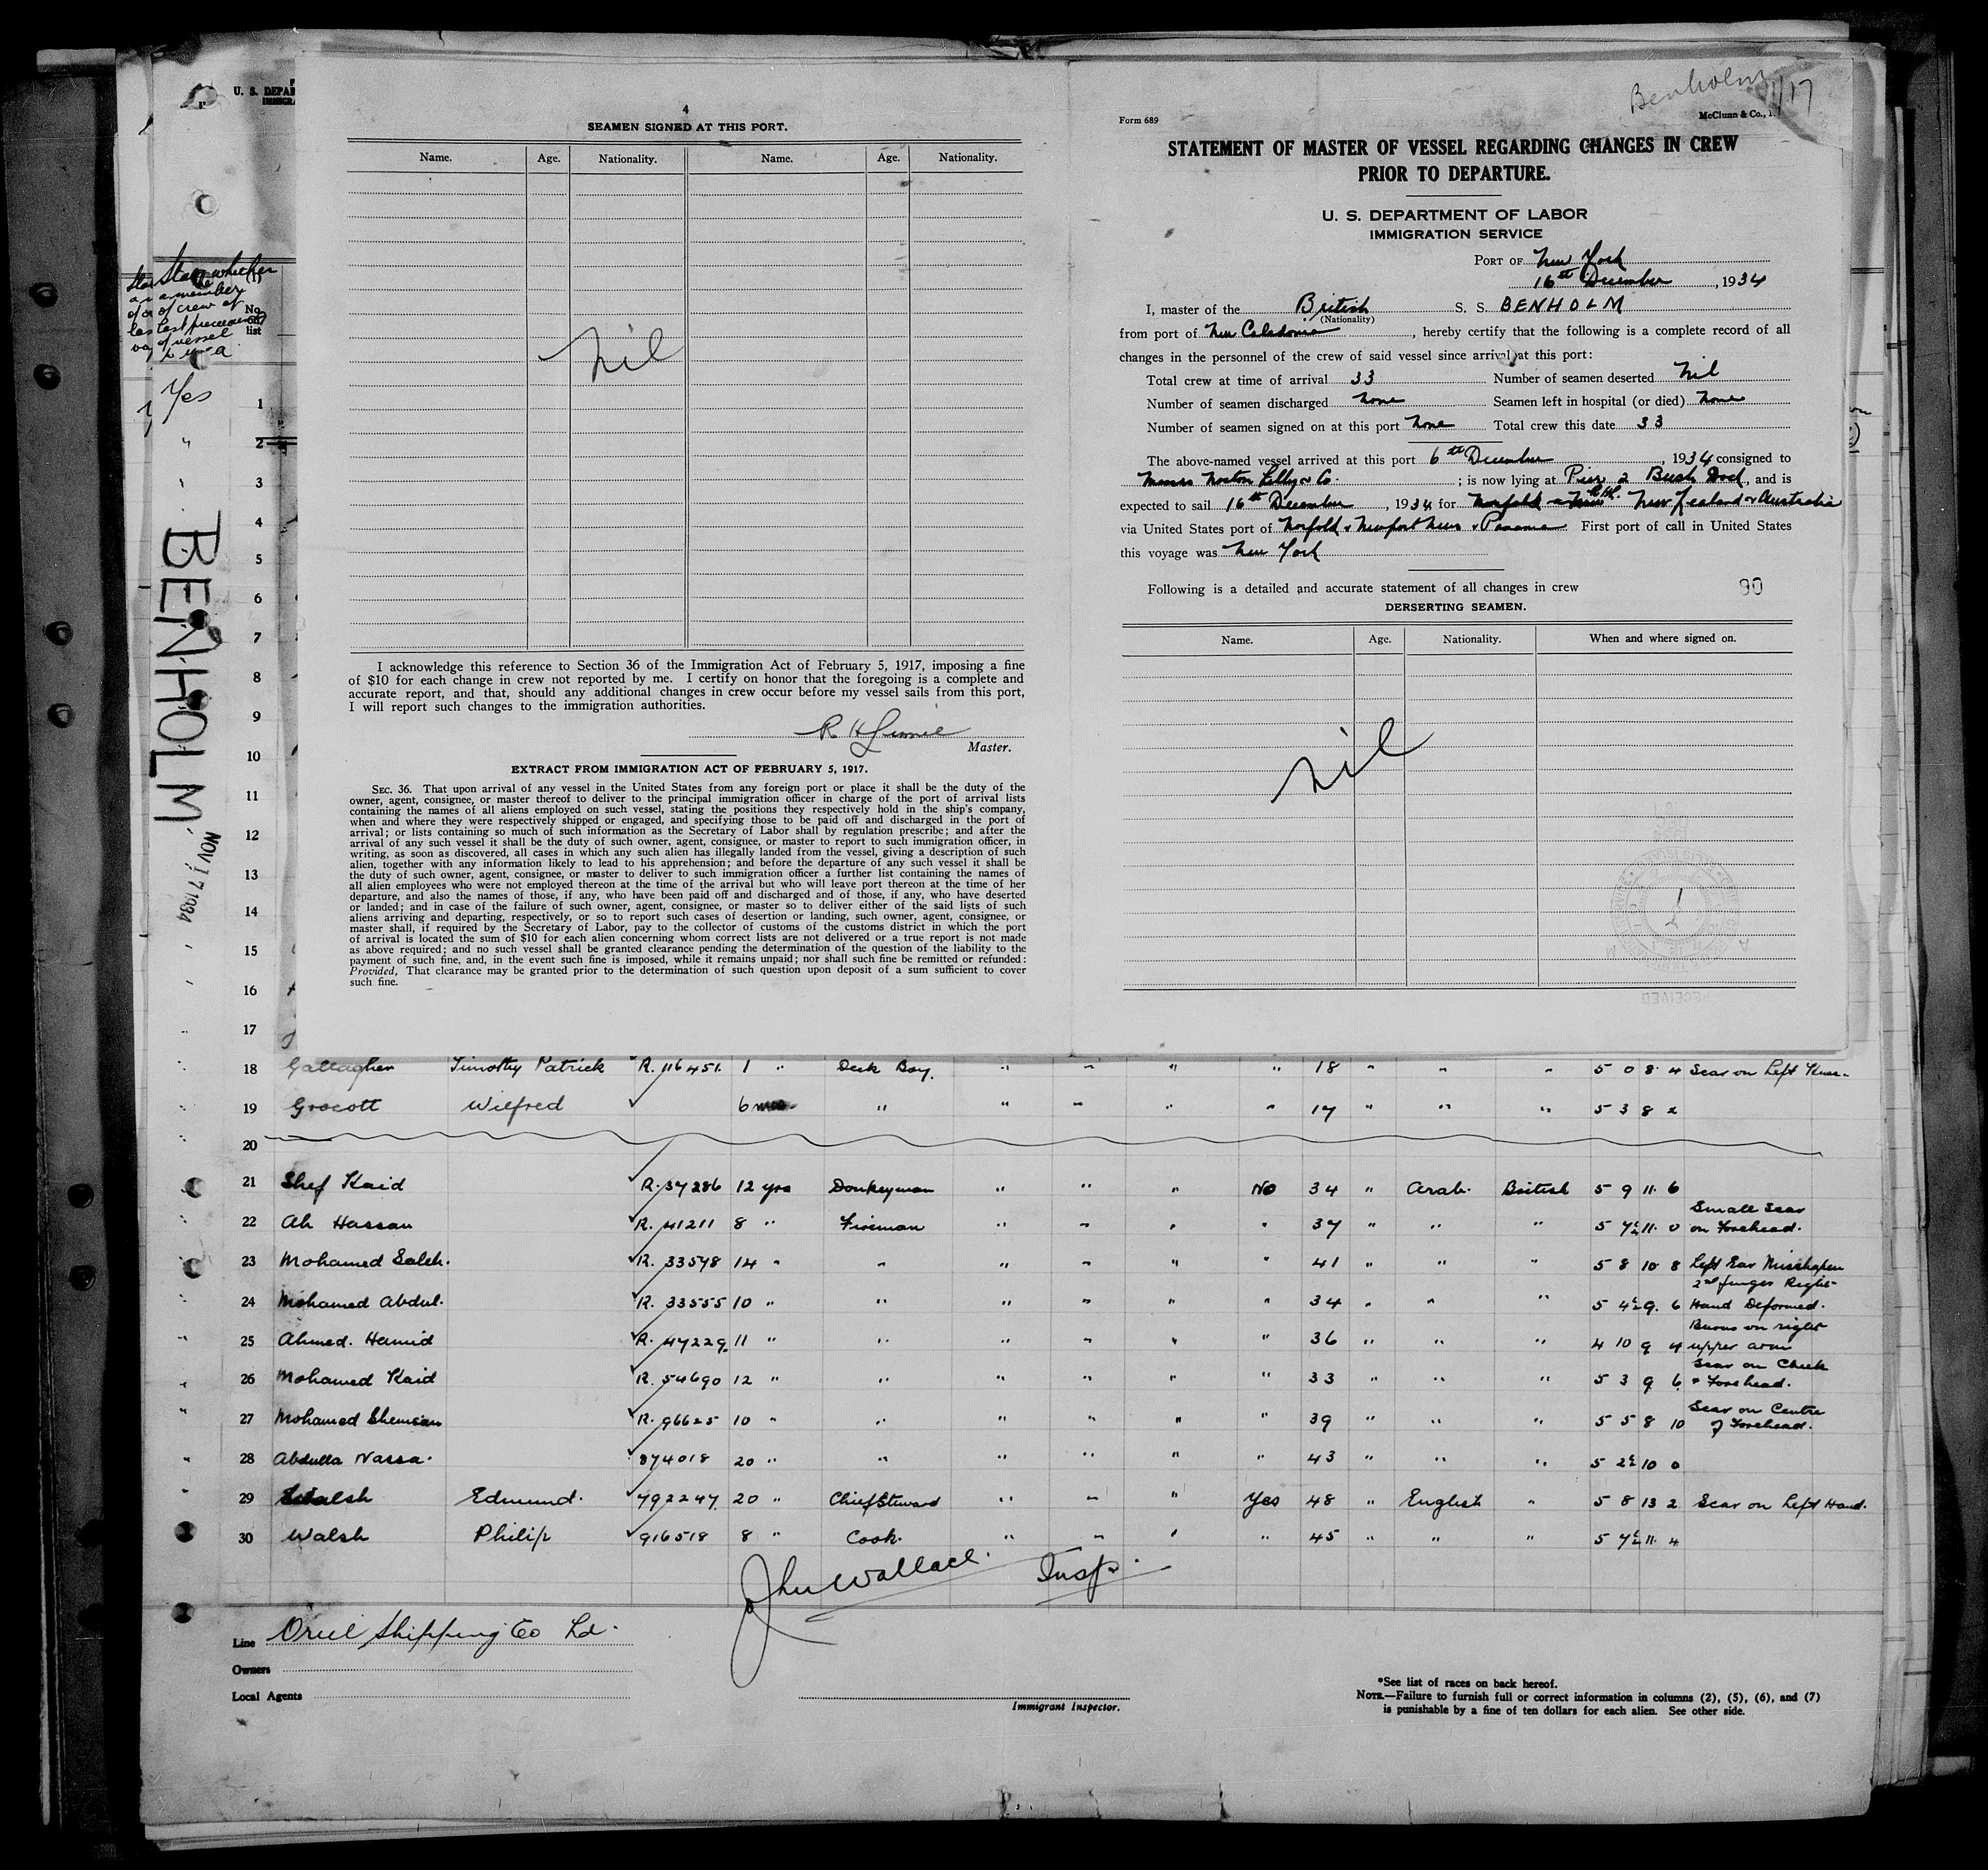 4
SEAMEN SIGNED AT THIS PORT.
Name. Age. Nationality. Name. Age. Nationality.
Nil
I acknowledge this reference to Section 36 of the Immigration Act of February 5, 1917, imposing a fine
of $10 for each change in crew not reported by me. I certify on honor that the foregoing is a complete and
accurate report, and that, should any additional changes in crew occur before my vessel sails from this port,
I will report such changes to the immigration authorities.
Master.
EXTRACT FROM IMMIGRATION ACT OF FEBRUARY 5, 1917.
SEC. 36. That upon arrival of any vessel in the United States from any foreign port or place it shall be the duty of the
owner, agent, consignee, or master thereof to deliver to the principal immigration officer in charge of the port of arrival lists
containing the names of all aliens employed on such vessel, stating the positions they respectively hold in the ship's company,
when and where they were respectively shipped or engaged, and specifying those to be paid off and discharged in the port of
arrival; or lists containing so much of such information as the Secretary of Labor shall by regulation prescribe; and after the
arrival of any such vessel it shall be the duty of such owner, agent, consignee, or master to report to such immigration officer, in
writing, as soon as discovered, all cases in which any such alien has illegally landed from the vessel, giving a description of such
alien, together with any information likely to lead to his apprehension; and before the departure of any such vessel it shall be
the duty of such owner, agent, consignee, or master to deliver to such immigration officer a further list containing the names of
all alien employees who were not employed thereon at the time of the arrival but who will leave port thereon at the time of her
departure, and also the names of those, if any, who have been paid off and discharged and of those, if any, who have deserted
or landed; and in case of the failure of such owner, agent, consignee, or master so to deliver either of the said lists of such
aliens arriving and departing, respectively, or so to report such cases of desertion or landing, such owner, agent, consignee, or
master shall, if required by the Secretary of Labor, pay to the collector of customs of the customs district in which the port
of arrival is located the sum of $10 for each alien concerning whom correct lists are not delivered or a true report is not made
as above required; and no such vessel shall be granted clearance pending the determination of the question of the liability to the
payment of such fine, and, in the event such fine is imposed, while it remains unpaid; nor shall such fine be remitted or refunded:
Provided, That clearance may be granted prior to the determination of such question upon deposit of a sum sufficient to cover
such fine.
Benholm 11/17
Form 689 McClunn & Co.,
STATEMENT OF MASTER OF VESSEL REGARDING CHANGES IN CREW
PRIOR TO DEPARTURE.
U. S. DEPARTMENT OF LABOR
IMMIGRATION SERVICE
PORT OF New York
16th December, 1934
I, master of the British S. S. BENHOLM
(Nationality)
from port of New Caledonia, hereby certify that the following is a complete record of all
changes in the personnel of the crew of said vessel since arrival at this port:
Total crew at time of arrival 33 Number of seamen deserted Nil
Number of seamen discharged None Seamen left in hospital (or died) None
Number of seamen signed on at this port None Total crew this date 33
The above-named vessel arrived at this port 6th December, 1934 consigned to
Messrs Norton Lilly & Co. ; is now lying at Pier 2 Bush Dock, and is
expected to sail 16th December, 1934 for New Zealand & Australia
via United States port of Norfolk & Newport News & Panama First port of call in United States
this voyage was New York
Following is a detailed and accurate statement of all changes in crew 90
DERSERTING SEAMEN.
Name. Age. Nationality. When and where signed on.
Nil
RECEIVED
U. S. DEPA
IMMIGRA
State whether
a member
of crew of
last preceeding
vessel
No. on list
Yes
BENHOLM
NOV 17 1934
1
2
3
4
5
6
7
8
9
10
11
12
13
14
15
16
17
18 Gallagher Timothy Patrick R. 116451 1 " Deck Boy. " " " " 18 " " " 5 0 8 4 Scar on Left Knee.
19 Grocott Wilfred 6 mos " " " " " 17 " " " 5 3 8 2
20
21 Shef Kaid R. 37286 12 yrs Donkeyman " " " No 34 " Arab. British 5 9 11 6
22 Ali Hassan R. 41211 8 " Fireman " " " " 37 " " " 5 7½ 11 0 Small Scar on Forehead.
23 Mohamed Saleh. R. 33578 14 " " " " " " 41 " " " 5 8 10 8 Left Ear Misshapen
24 Mohamed Abdul. R. 33555 10 " " " " " " 34 " " " 5 4½ 9 6 2nd finger Right Hand Deformed.
25 Ahmed. Hamid R. 47229 11 " " " " " " 36 " " " 4 10 9 4 Burns on right upper arm
26 Mohamed Kaid R. 54690 12 " " " " " " 33 " " " 5 3 9 6 Scar on Cheek & Forehead.
27 Mohamed R. 96625 10 " " " " " " 39 " " " 5 5 8 10 Scar on Centre of Forehead.
28 Abdulla Nassa. 874018 20 " " " " " " 43 " " " 5 2½ 10 0
29 Walsh Edmund. 792247 20 " Chief Steward " " " Yes 48 " English " 5 8 13 2 Scar on Left Hand.
30 Walsh Philip 916518 8 " Cook. " " " " 45 " " " 5 7½ 11 4
John Wallace. Insp.
Line Oriel Shipping Co Ld.
Owners
Local Agents
Immigrant Inspector.
*See list of races on back hereof.
NOTE.—Failure to furnish full or correct information in columns (2), (5), (6), and (7)
is punishable by a fine of ten dollars for each alien. See other side.